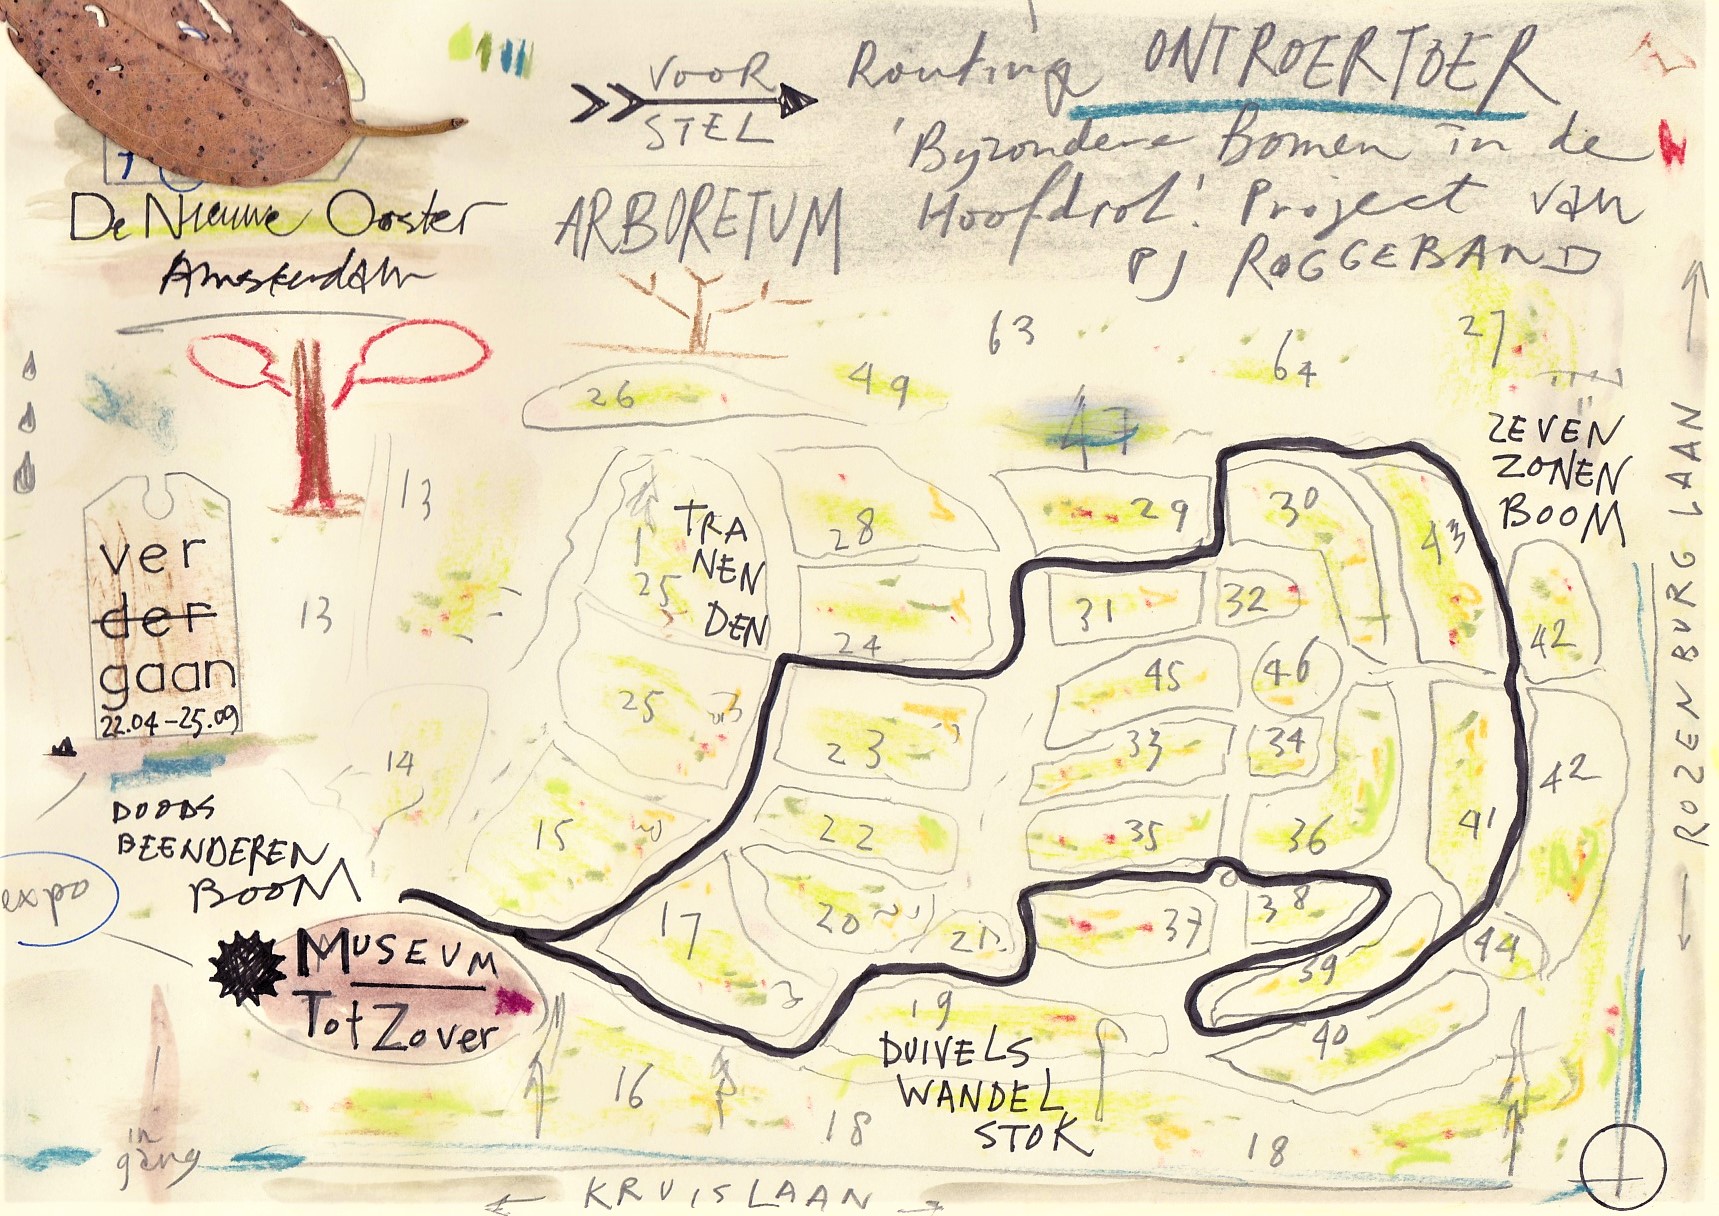 VOOR
STEL
Routing ONTROERTOER
'Byzondere Bomen in de
Hoofdrol'. Project van
PJ ROGGEBAND
ARBORETUM
De Nieuwe Ooster
Amsterdam
63
64
27
26
49
47
ZEVEN
ZONEN
BOOM
ROZENBURG LAAN
13
13
ver
der
gaan
22.04-25.09
TRA
NEN
DEN
25
28
29
30
43
24
31
32
42
25
23
45
46
33
34
42
14
15
22
35
36
41
DOODS
BEENDEREN
BOOM
expo
17
20
21
37
38
44
39
MUSEUM
Tot Zover
19
40
DUIVELS
WANDEL
STOK
16
18
18
in
gang
KRUISLAAN